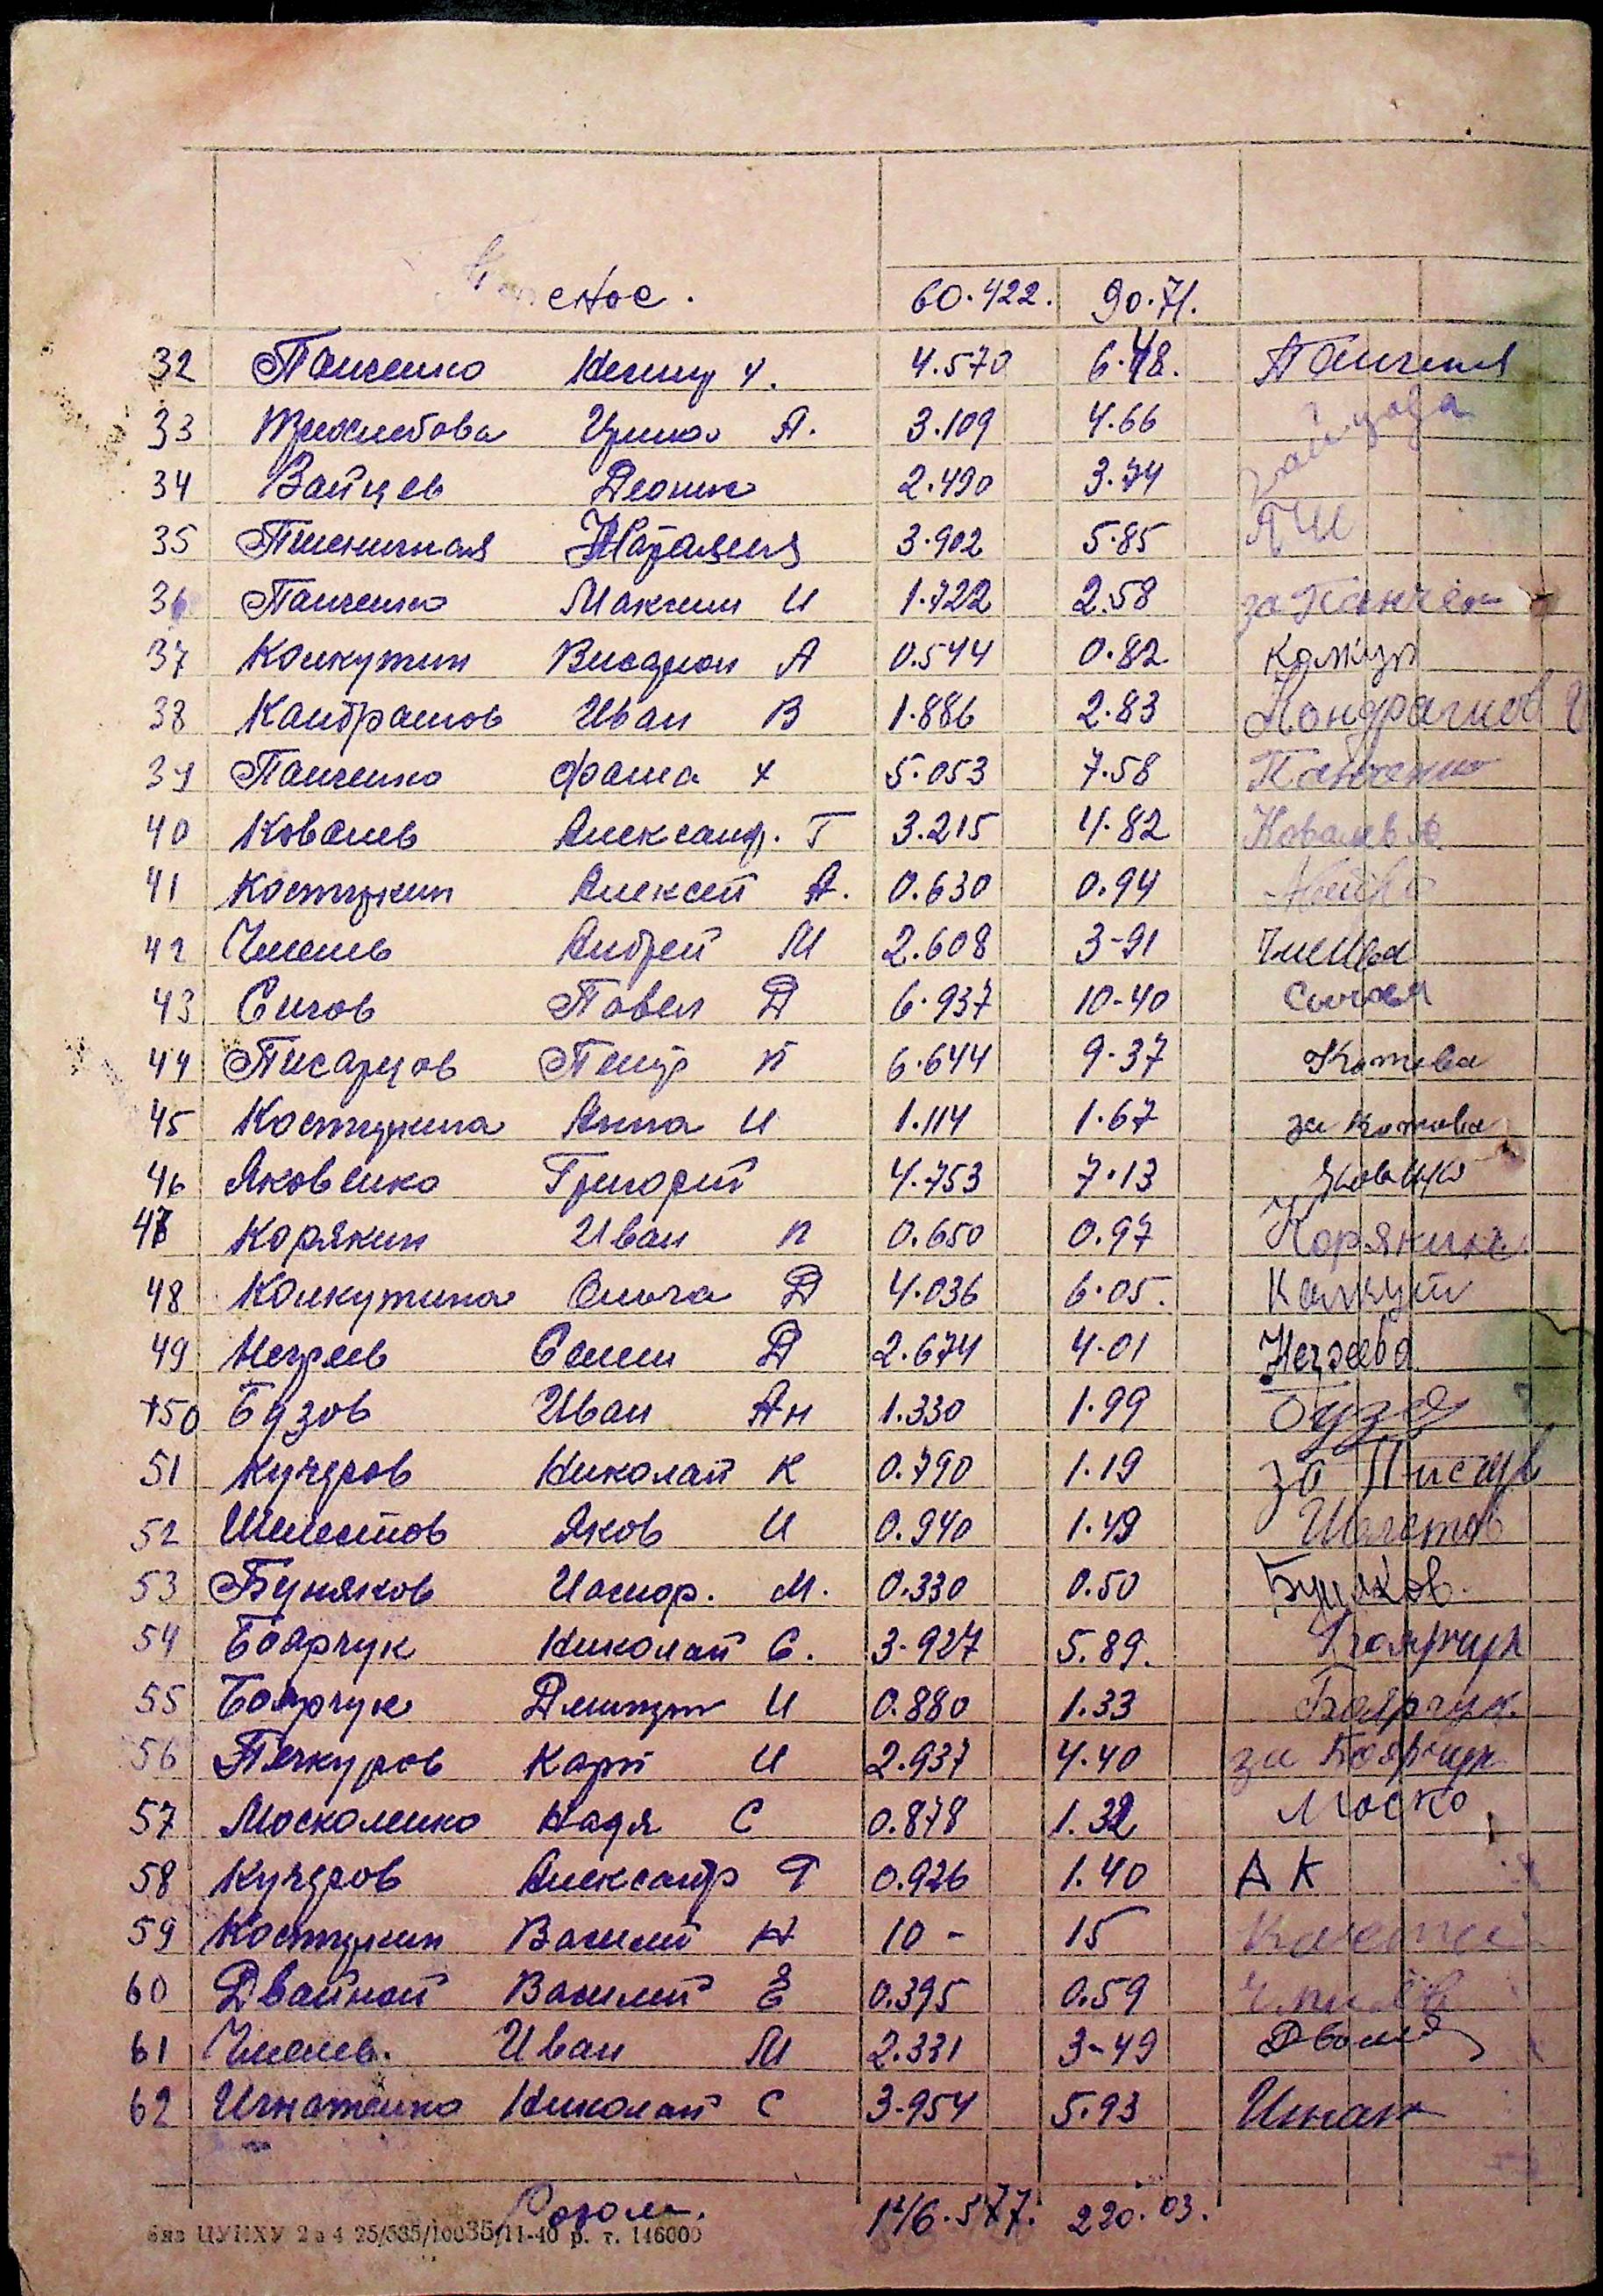 60.422. 90.71.
32 Панченко 4.570 6.48.
33 Ирина А. 3.109 4.66
34 Зайцев 2.490 3.74
35 Пшеничная Наталия 3.902 5.85 ПЧИ
36 Панченко Максим И 1.722 2.58 за Панчен
37 Колкутин Висарион А 0.544 0.82
38 Кандрашов Иван В 1.886 2.83 Кондрашов
39 Панченко Фома 5.053 7.58 Панченко
40 Ковалев Александ. Г 3.215 4.82 Ковалев А
41 Костюкин Алексей А. 0.630 0.94
42 Чмелев Андрей М 2.608 3-91
43 Сигов Павел Д 6.937 10-40
44 Писарцов Петр П 6.644 9-37
45 Костюкина Анна И 1.114 1.67 за
46 Яковенко Григорий 4.753 7.13
47 Корякин Иван П 0.650 0.97 Корякин
48 Колкутина Ольга Д 4.036 6.05. Колкут
49 Негреев Семен Д 2.674 4-01
50 Бузов Иван Ан 1.330 1.99 Бузо
51 Кучеров Николай К 0.790 1.19 за Писар
52 Шелестов Яков И 0.940 1.49 Шелестов
53 Буняков М. 0.330 0.50 Буняков.
54 Боярчук Николай С. 3-927 5.89. Боярчук
55 Боярчук Дмитрий И 0.880 1.33 Боярчук
56 Печкуров Карп И 2.937 4.40 за Боярчук
57 Москаленко Надя С 0.878 1.32 Моско
58 Кучеров Александр Г 0.926 1.40 А К
59 Костюкин Василий Н 10 - 15
60 Двайной Василий Е 0.395 0.59
61 Чмелев. Иван М 2.331 3-49
62 Игнатенко Николай С 3-954 5.93 Игнат
Разом. 146.577. 220.03.